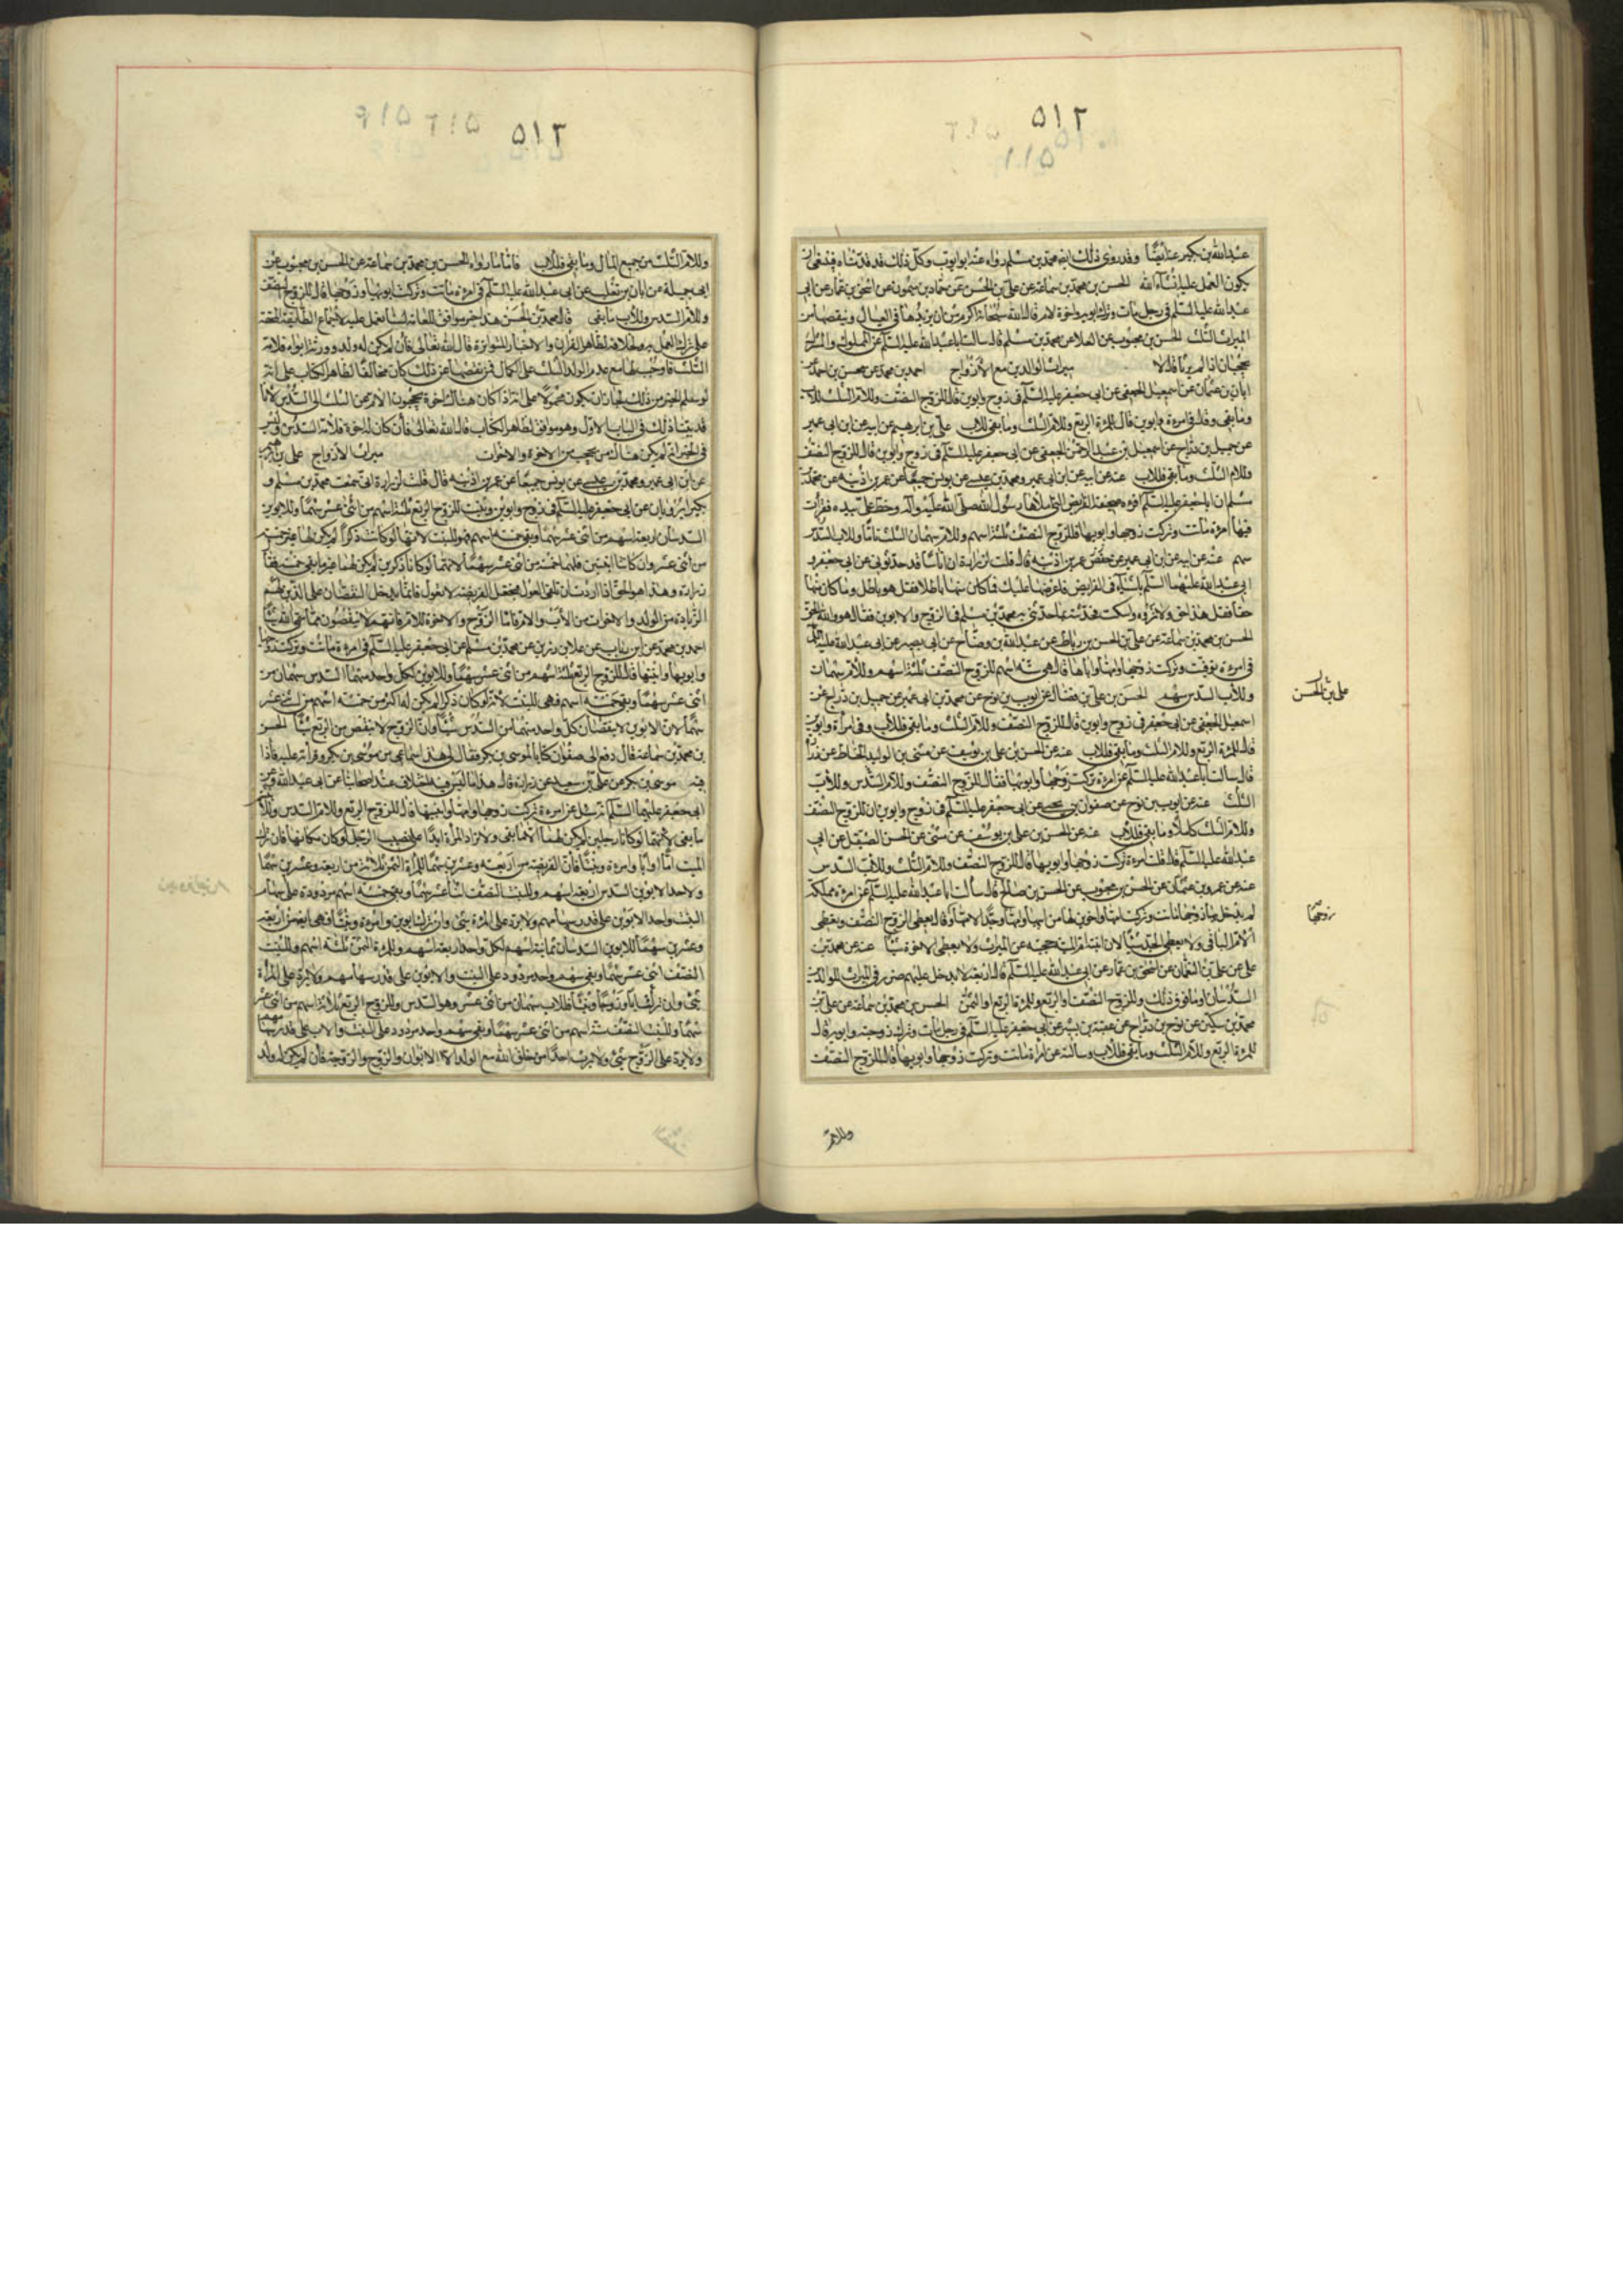 ٥١٢
٥١١
عبدالله بن بكير عنه ايضًا وقد روى ذلك ايضا محمد بن مسلم رواه عنه ابو ايوب وكل ذلك قد قدمناه فينبغى ان
يكون العمل عليه ان شاء الله الحسن بن محمد بن سماعة عن على بن الحسن عن حماد بن ميمون عن اسحق بن عمار عن ابى
عبدالله عليه السلم فى رجل مات وترك ابويه واخوة لام قال الله سبحانه اكرم من ان يزيدها فى العيال وينقصها من
الميراث الثلث الحسن بن محبوب عن العلا عن محمد بن مسلم قال سالت ابا عبدالله عليه السلم عن المملوك والمشرك
يحجبان اذا لم يرثا قال لا ميراث الوالدين مع الازواج احمد بن محمد عن محسن بن احمد عن
ابان بن عثمان عن اسمعيل الجعفى عن ابى جعفر عليه السلم فى زوج وابوين قال للزوج النصف وللام الثلث وللاب
وما بقى وقال فى امرءة وابوين قال للمرءة الربع وللام الثلث وما بقى للاب على بن ابرهيم عن ابيه عن ابن ابى عمير
عن جميل بن دراج عن اسمعيل بن عبد الرحمن الجعفى عن ابى جعفر عليه السلم فى زوج وابوين قال للزوج النصف
وللام الثلث وما بقى فللاب عنه عن ابيه عن ابن ابى عمير ومحمد بن عيسى عن يونس جميعًا عن عمر بن اذينه عن محمد بن
مسلم ان ابا جعفر عليه السلم اقرءه صحيفة الفرايض التى املاها رسول الله صلى الله عليه وآله وخط على بيده فقرات
فيها امرءة ماتت وتركت زوجها وابويها فللزوج النصف ثلثة اسهم وللام سهمان الثلث تاما وللاب السدس
سهم عنه عن ابيه عن ابن ابى عمير عن عمر بن اذينه قال قلت لزرارة ان اناسًا قد حدثونى عن ابى جعفر و
ابى عبدالله عليهما السلم باشياء فى الفرايض فاعرضها عليك فما كان منها باطلا فقل هو باطل وما كان منها
حقا فقل هذا حق ولا تروه واسكت فحدثته بما حدثنى به محمد بن مسلم فى الزوج والابوين فقال هو والله الحق
الحسن بن محمد بن سماعة عن على بن الحسن بن رباط عن عبدالله بن وضاح عن ابى بصير عن ابى عبدالله عليه السلم
فى امرءة توفيت وتركت زوجها وامها واباها قال هى ستة اسهم للزوج النصف ثلثة اسهم وللام سهمان
وللاب السدس سهم الحسن بن على بن فضال عن ايوب بن نوح عن محمد بن ابى عمير عن جميل بن دراج عن
اسمعيل الجعفى عن ابى جعفر فى زوج وابوين قال للزوج النصف وللام الثلث وما بقى فللاب وفى امرأة وابوين
قال للمرءة الربع وللام الثلث وما بقى فللاب عنه عن الحسن بن على بن يوسف عن مثنى بن الوليد الحناط عن زرارة
قال سالت ابا عبدالله عليه السلم عن امرءة تركت زوجها وابويها فقال للزوج النصف وللام السدس وللاب
الثلث عنه عن ايوب بن نوح عن صفوان بن يحيى عن ابى جعفر عليه السلم فى زوج وابوين ان للزوج النصف
وللام الثلث كاملا وما بقى فللاب عنه عن الحسن بن على بن يوسف عن مثنى عن الحسن الصيقل عن ابى
عبدالله عليه السلم قال قلت امرءة تركت زوجها وابويها قال للزوج النصف وللام الثلث وللاب السدس
عنه عن عمرو بن عثمان عن الحسن بن محبوب عن الحسن بن صالح قال سألت ابا عبدالله عليه السلم عن امرءة مملكة
لم يدخل بها زوجها ماتت وتركت امها واخوين لها من ابيها وامها وجدًا لامها وزوجها قال يعطى الزوج النصف ويعطى
الام الباقى ولا يعطى الجد شيئًا لان ابنته ام الميت حجبته عن الميراث ولا يعطى الاخوة شيئًا عنه عن محمد بن
على عن على بن النعمان عن اسحق بن عمار عن ابى عبدالله عليه السلم قال اربعة لا يدخل عليهم ضرر فى الميراث للوالدين
السدسان او ما فوق ذلك وللزوج النصف او الربع وللمرءة الربع او الثمن الحسن بن محمد بن سماعة عن على بن
محمد بن سكين عن نوح بن دراج عن عقبة بن بشير عن ابى جعفر عليه السلم فى رجل مات وترك زوجته وابويه قال
للمرءة الربع وللام الثلث وما بقى فللاب وسالته عن امرأة ماتت وتركت زوجها وابويها قال للزوج النصف
على بن الحسن
زوجها
وللام
٥١٢
وللام الثلث من جميع المال وما بقى فللاب فاما ما رواه الحسن بن محمد بن سماعة عن الحسن بن محبوب عن
ابى جميلة عن ابان بن تغلب عن ابى عبدالله عليه السلم فى امرءة ماتت وتركت ابويها وزوجها قال للزوج النصف
وللام السدس وللاب ما بقى قال محمد بن الحسن هذا خبر موافق للعامة لسنا نعمل عليه لاجماع الطايفة المحقة
على ترك العمل به ولخلافه لظاهر القرآن والاخبار المتواترة قال الله تعالى فان لم يكن له ولد وورثه ابواه فلامه
الثلث فاوجب لها مع عدم الولد الثلث على الكمال فمن نقصها عن ذلك كان مخالفًا لظاهر الكتاب على انه
لو سلم الخبر من ذلك لجاز ان يكون محمولا على انه اذا كان هناك اخوة يحجبون الام من الثلث الى السدس لانا
قد بينا ذلك فى الباب الاول وهو موافق لظاهر الكتاب قال الله تعالى فان كان له اخوة فلامه السدس وليس
فى الخبر انه لم يكن هناك من يحجب من الاخوة والاخوات ميراث الازواج على بن ابرهيم
عن ابن ابى عمير ومحمد بن عيسى عن يونس جميعًا عن عمر بن اذينه قال قلت لزرارة انى سمعت محمد بن مسلم و
بكيرا يرويان عن ابى جعفر عليه السلم فى زوج وابوين وبنت للزوج الربع ثلثة اسهم من اثنى عشر سهمًا وللابوين
السدسان اربعة اسهم من اثنى عشر سهمًا وبقى خمسة اسهم فهو للبنت لانها لو كانت ذكرًا لم يكن لها غير خمسة
من اثنى عشر وان كانتا اثنتين فلهما خمسة من اثنى عشر سهمًا لانهما لو كانا ذكرين لم يكن لهما غير ما بقى خمسة فقال
زرارة وهذا هو الحق اذا اردت ان تلقى العول فتجعل الفريضة لا تعول فانما يدخل النقصان على الذين لهم
الزيادة من الولد والاخوات من الاب والام فاما الزوج والاخوة للام فانهم لا ينقصون مما سمى الله شيئًا
احمد بن محمد عن ابن رئاب عن علا بن رزين عن محمد بن مسلم عن ابى جعفر عليه السلم فى امرءة ماتت وتركت زوجها
وابويها وابنتها قال للزوج الربع ثلثة اسهم من اثنى عشر سهمًا وللابوين لكل واحد منهما السدس سهمان من
اثنى عشر سهمًا وبقى خمسة اسهم فهى للبنت لانه لو كان ذكرا لم يكن له اكثر من خمسة اسهم من اثنى عشر
سهمًا لان الابوين لا ينقصان كل واحد منهما من السدس شيئًا وان الزوج لا ينقص من الربع شيئًا الحسن
بن محمد بن سماعة قال دفع الى صفوان كتابا لموسى بن بكر فقال لى هذا سماعى من موسى بن بكر وقراته عليه فاذا
فيه موسى بن بكر عن على بن سعيد عن زرارة قال هذا ما ليس فيه اختلاف عند اصحابنا عن ابى عبدالله وعن
ابى جعفر عليهما السلم انه سئل عن امرءة تركت زوجها وامها وابنتيها قال للزوج الربع وللام السدس وللابنتين
ما بقى لانهما لو كانا رجلين لم يكن لهما الا ما بقى ولا تزاد المرأة ابدًا على نصيب الرجل لو كان مكانها فان ترك
الميت اما او ابا وامرءة وبنتًا فان الفريضة من اربعة وعشرين سهمًا للمرءة الثمن ثلاثة من اربعة وعشرين سهمًا
ولاحد الابوين السدس اربعة اسهم وللبنت النصف اثنا عشر سهمًا وبقى خمسة اسهم مردودة على سهام
البنت واحد الابوين على قدر سهامهم ولا يرد على المرءة شئ وان ترك ابوين وامرءة وبنتًا فهى ايضا من اربعة
وعشرين سهمًا للابوين السدسان ثمانية اسهم لكل واحد اربعة اسهم وللمرءة الثمن ثلثة اسهم وللبنت
النصف اثنى عشر سهمًا وبقى سهم واحد مردود على البنت والابوين على قدر سهامهم ولا يرد على المرأة
شئ وان ترك ابا وزوجًا وبنتًا فللاب سهمان من اثنى عشر وهو السدس وللزوج الربع ثلاثة اسهم من اثنى عشر
سهمًا وللبنت النصف ستة اسهم من اثنى عشر سهمًا وبقى سهم واحد مردود على البنت والاب على قدر سهامهما
ولا يرد على الزوج شئ ولا يرث احد من خلق الله مع الولد الا الابوان والزوج والزوجة فان لم يكن له ولد